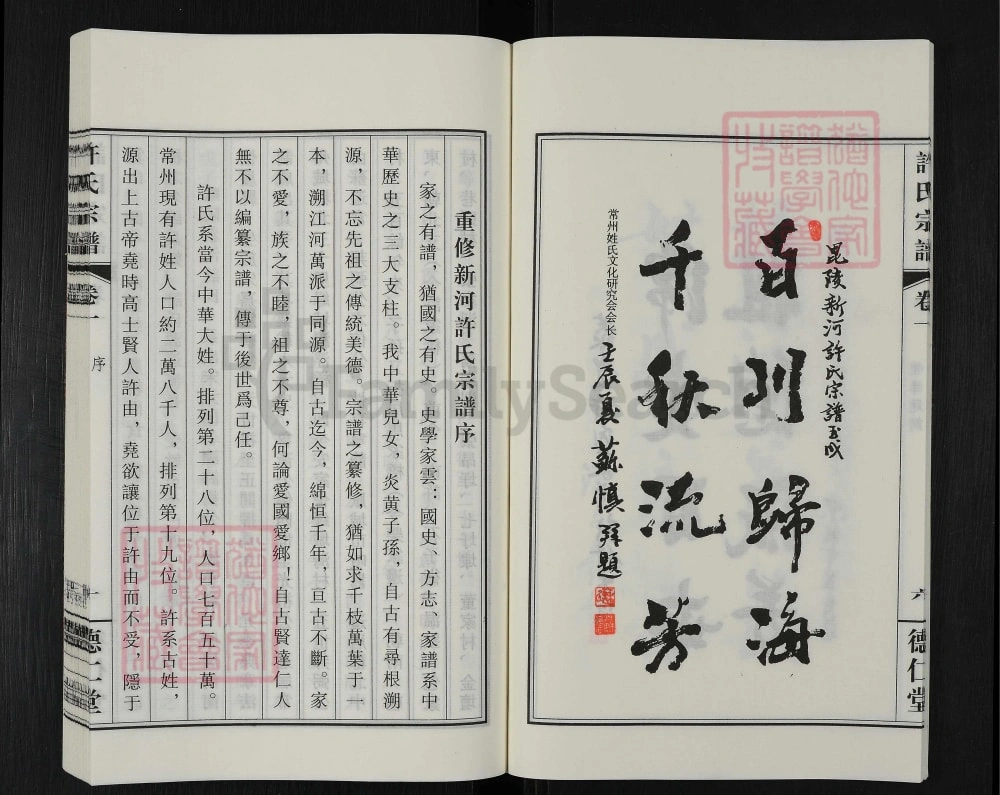 許氏宗譜
卷一
六
德仁堂
毘陵新河許氏宗譜玉成
百川歸海
千秋流芳
常州姓氏文化研究会会长
壬辰夏 蘇慎 拜題
重修新河許氏宗譜序
家之有譜，猶國之有史。史學家雲：國史、方志、家譜系中
華歷史之三大支柱。我中華兒女，炎黄子孫，自古有尋根溯
源，不忘先祖之傳統美德。宗譜之纂修，猶如求千枝萬葉于一
本，溯江河萬派于同源。自古迄今，綿恒千年，亘古不斷。家
之不愛，族之不睦，祖之不尊，何論愛國愛鄉！自古賢達仁人
無不以編纂宗譜，傳于後世爲己任。
許氏系當今中華大姓。排列第二十八位，人口七百五十萬。
常州現有許姓人口約二萬八千人，排列第十九位。許系古姓，
源出上古帝堯時高士賢人許由，堯欲讓位于許由而不受，隱于
許氏宗譜
卷一
序
一
德仁堂
FamilySearch